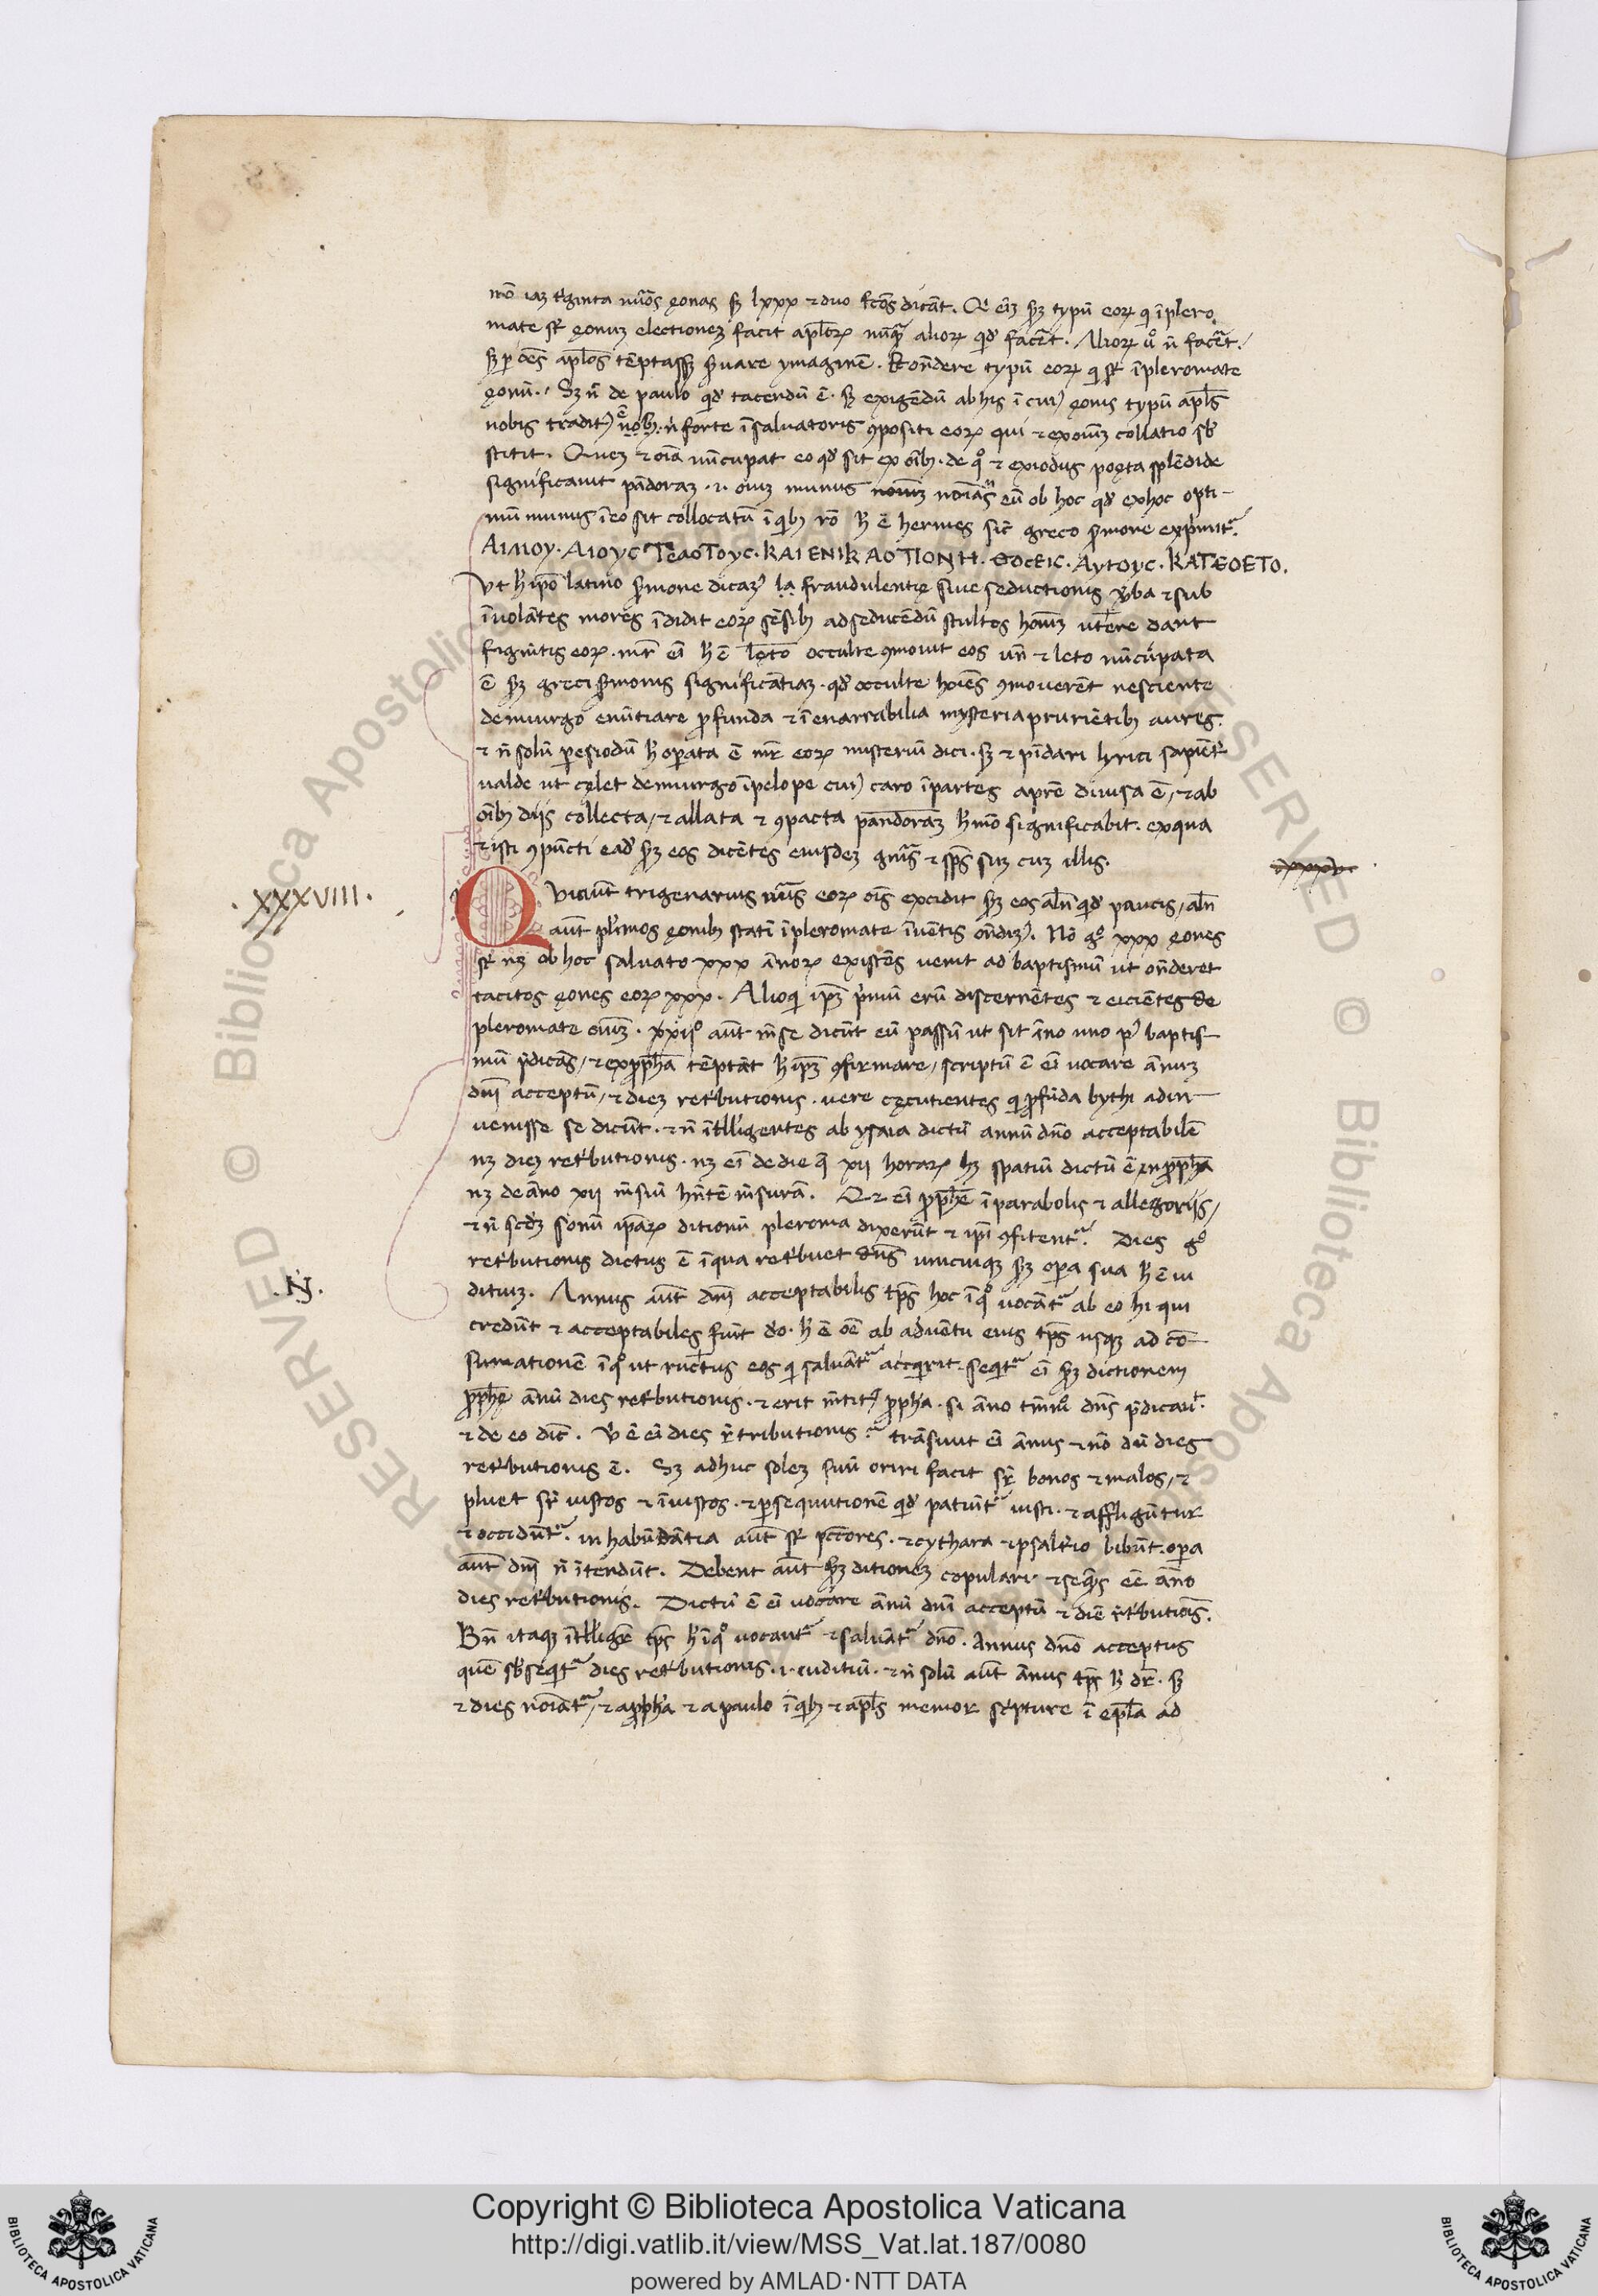 mō iaȝ triginta nūos ęonas sȝ lxxx ⁊ duo fcōs dicāt. Q eīȝ sȝ typū eoꝝ q̇ ī plero
mate st̄ ęonuȝ electioneȝ facit apłoꝝ nūq̄ alioꝝ qd̓ facēt. Alioꝝ ů n̄ facēt
sȝ p oēs apłos tēptasse seruare ymaginē. ondere typū eoꝝ q̇ st̄ ī pleromate
ęonū. Sȝ n̄ de paulo qd̓ tacendū ē. sȝ exigēdū ab his ī cui' ęonis typū apłs
nobis tradit' ē nob. n̄ forte ī saluatoris ꝯpositi eoꝝ qui ⁊ ex oīuȝ collatio sb
stitit. Queȝ ⁊ oīa nūcupat eo qd̓ sit ex oībꝫ. de q̊ ⁊ exiodus poęta splēdide
significauit pādoraȝ .i. oiuȝ munus noīās eū ob hoc qd̓ ex hoc opti-
mū munus ī eo sit collocatū ī q̇bꝫ h̄ ē hermes sic greco sermone exprimit᷑
ΑΙΛΙΟΥ. ΛΙΟΥC ΤΕΑΟΤΟΥC. ΚΑΙ ΕΝΙΚΑΟΤΙΟΝΗ. ΘΟCΕΙC. ΑΥΤΟΥC. ΚΑΤΕΟΕΤΟ.
Vt h̄ ip̄o latino sermone dicaȝ la fraudulentię siue seductionis v̓ba ⁊ sub
īuolātes mores īdidit eoꝝ sēsibꝫ ad seducēdū stultos homȝ vt dant
figmētis eoꝝ. mr̄ eī h̄ ē lęto occulte ꝯmouit eos vn̄ ⁊ leto nūcupata
ē sȝ greci sermonis significātiaȝ. qd̓ occulte hoīēs ꝯmouerēt nesciente
demiurgo enūtiare ꝓfunda ⁊ īenarrabilia mysteria prurietībꝫ aures.
⁊ n̄ solū p esiodū h̄ opata ē mr̄ eoꝝ misteriū dici. sȝ ⁊ pīdari lyrici sapiēt̓
ualde ut cęlet demiurgo ī pelope cui' caro ī partes a prē diuisa ē, ⁊ ab
oībꝫ diis collecta, ⁊ allata ⁊ ꝯpacta pandoraȝ h̄ mō significabit. ex qua
⁊ isti ꝯpūcti ead̓ sȝ eos dicētes eiusdeȝ gn̄is ⁊ sp̄s suȝ cuȝ illis.
. XXXVIII.
Quiaūt trigenarius nūs eoꝝ oīs excidit sȝ eos aln̄ qd̓ paucis, aln̄
aūt plimos ęonibꝫ statī ī pleromate īuētis ōndiȝ. Nō g̊ xxx ęones
st̄ nȝ ob hoc saluato xxx ānoꝝ existēs uenit ad baptismū ut ōnderet
tacitos ęones eoꝝ xxx. Alioq̇ ip̄ȝ p̓mū erū discernētes ⁊ eiciētes de
pleromate oiuȝ. xxiio aūt mēse dicūt eū passū ut sit āno uno p' baptis
mū p̄dicās, ⁊ ex pph̄a tēptāt h̄ ip̄ȝ ꝯfirmare, scriptū ē eī uocare ānuȝ
dnī acceptū, ⁊ dieȝ ret̓butionis. uere cęcutientes q̇ ꝓfūda bythi adin
uenisse se dicūt. ⁊ n̄ ītllīgentes ab ysaia dictū annū dnō acceptabilē
nȝ dieȝ ret̓butionis. nȝ eī de die q̄ xii horaꝝ hȝ spatiū dictū ē ex pph̄a
nȝ de āno xii mēsiū hn̄tē mēsurā. Q ⁊ eī pph̄e ī parabolis ⁊ allegoriis,
⁊ n̄ scd̓ȝ sonū ip̄aꝝ ditionū pleroma dixerūt ⁊ ip̄i ꝯfitent᷑. Dies g̊
ret̓butionis dictus ē ī qua ret̓buet dn̄s unicuiqꝫ sȝ opa sua h̄ ē iu
. N̄.
ditiuȝ. Annus aūt dnī acceptabilis tp̄s hoc ī q̊ uocāt᷑ ab eo hi qui
credūt ⁊ acceptabiles fiūt do. h̄ ē oē ab aduētu eius tp̄s usqꝫ ad cō
sumationē ī q̊ ut eos q̇ saluāt᷑ acq̇rit. seq̇t᷑ eī sȝ dictionem
pph̄ę ānū dies ret̓butionis. ⁊ erit mētit' pph̄a. si āno tm̄m̊ dn̄s p̄dicauı̄t
⁊ de eo dīc. v̓ ē eī dies r̄tributionis? trāsiuit eī ānus ⁊ nō dū dies
ret̓butionis ē. Sȝ adhuc soleȝ suū oriri facit sr̄ bonos ⁊ malos, ⁊
pluet sr̄ iustos ⁊ īiustos. ⁊ psequutionē qd̓ patiūt᷑ iusti. ⁊ affligūtur
⁊ occidūt᷑. in habūdātia aūt st̄ pctōres. ⁊ cythara ⁊ psalt̓io bibūt. opa
aūt dnī n̄ ītendūt. Debent aūt sȝ ditioneȝ copulari ⁊ seq̄s eē āno
dies ret̓butionis. Dictū ē eī uocare ānū dnī acceptū ⁊ diē ret̓butiōis.
Bn̄ itaqꝫ ītlligr̄e tp̄s h̄ ī q̊ uocant᷑ ⁊ saluāt᷑ dnō. Annus dnō acceptus
quē sbseq̇t᷑ dies ret̓butionis .i. iuditiū. ⁊ n̄ solū aūt ānus tp̄s h̄ dr̄. sȝ
⁊ dies noīat᷑, ⁊ a pph̄a ⁊ a paulo ī q̇bꝫ ⁊ apłs memor sc̓pture ī epła ad
Copyright © Biblioteca Apostolica Vaticana
http://digi.vatlib.it/view/MSS_Vat.lat.187/0080
powered by AMLAD·NTT DATA
BIBLIOTECA APOSTOLICA VATICANA
BIBLIOTECA APOSTOLICA VATICANA
RESERVED © Biblioteca Apostolica
RESERVED © Biblioteca Apostolica